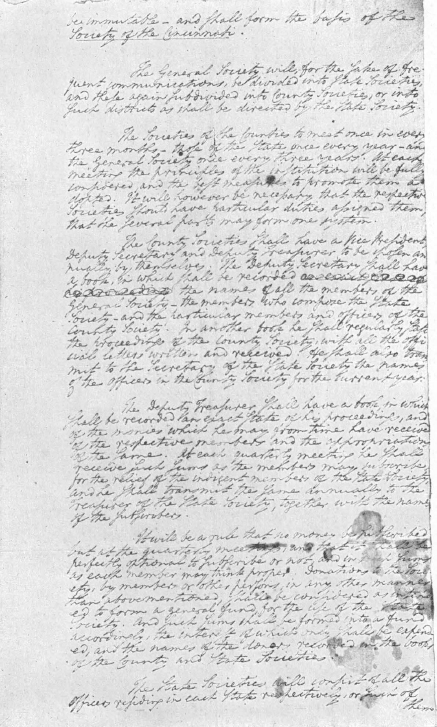 be immutable – and shall form the basis of the
Society of the Cincinnati.
The General Society will, for the sake of fre-
quent communications, be divided into State Societies,
and these again subdivided into County Societies, or into
such districts as shall be directed by the State Society.
The Societies of the Counties to meet once in every
three months – those of the State once every year – and
the General Society once every three years. At each
meeting the principles of the institution will be fully
considered, and the best measures to promote them a-
dopted. It will however be necessary that the respective
Societies should have particular duties assigned them
that the several parts may form one system.
The County Societies shall have a Vice President
Deputy Secretary and Deputy Treasurer to be chosen an-
nually by themselves. The Deputy Secretary shall have
a book, in which shall be recorded
the names of all the members of the
General Society – the members who compose the State
Society – and the particular members and officers of the
County Society. In another book he shall regularly State
the proceedings of the County Society, with all the offi-
cial letters written and received. He shall also trans-
mit to the Secretary of the State Society the names
of the officers in the County Society for the current year.
The Deputy Treasurer shall have a book in which
shall be recorded an exact State of his proceedings, and
of the monies which he may from time have received
of the respective members and the appropriation
of the same. At each quarterly meeting he shall
receive such sums as the members may subscribe
for the relief of the indigent members of the State Society
and he shall transmit the same annually to the
Treasurer of the State Society, together with the names
of the subscribers.
It will be a rule that no money be subscribed
but at the quarterly and that it shall be
perfectly optional to subscribe or not and
as each member may think proper. Donations to the Soci-
ety, by members or other persons in any other manner
than above mentioned, shall be considered as
ed to form a general fund, for the use of the State
Society. And such sums shall be formed into a fund
accordingly, the interest of which only shall be expend-
ed, and the names of the donors recorded in the books
of the County and State Societies.
The State Societies will consist of all the
Officers residing in each State respectively, or such of
them